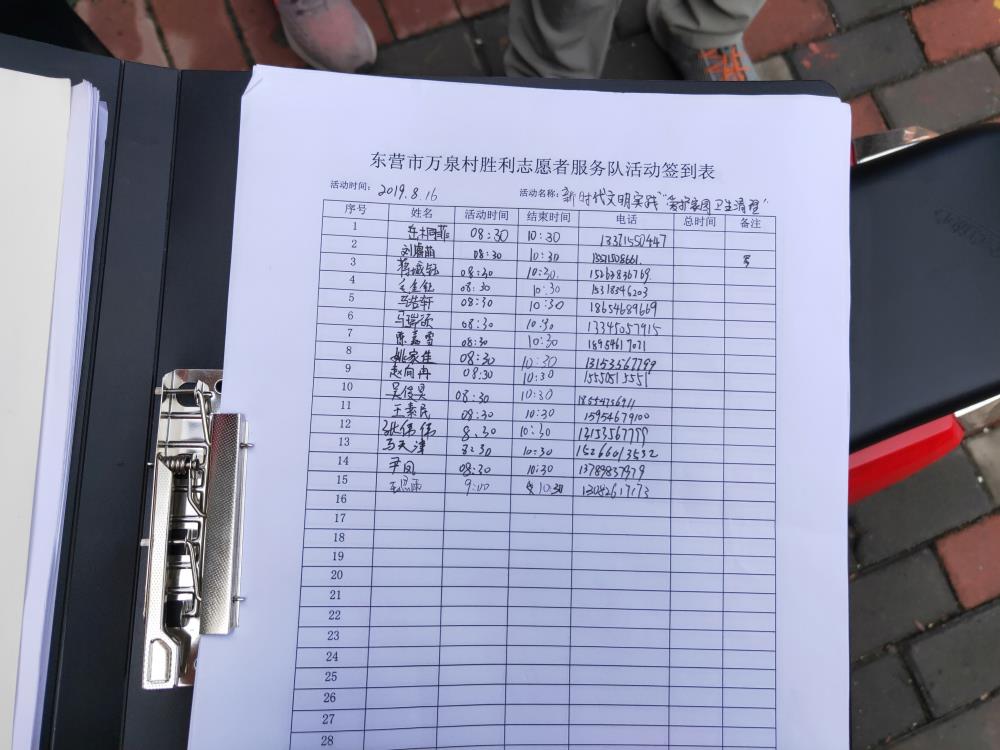 东营市万泉村胜利志愿者服务队活动签到表
活动时间: 2019.8.16 活动名称: 新时代文明实践"爱护家园卫生清理"
序号 姓名 活动时间 结束时间 电话 总时间 备注
1 岳桐菲 08:30 10:30 13371550447
2 08:30 10:30
3 08:30 10:30 15263836769
4 08:30 10:30 15318346203
5 马浩轩 08:30 10:30 18654689669
6 马瑞硕 08:30 10:30 13345057915
7 陈嘉雪 08:30 10:30 18954617071
8 姚家佳 08:30 10:30 13153567799
9 赵向冉 08:30 10:30
10 吴俊昊 08:30 10:30
11 王素民 08:30 10:30 15954679100
12 张伟伟 8:30 10:30 13153567799
13 马天泽 8:30 10:30 15266013532
14 辛凤 08:30 10:30 13789857979
15 9:00 10:30 13082617173
16
17
18
19
20
21
22
23
24
25
26
27
28